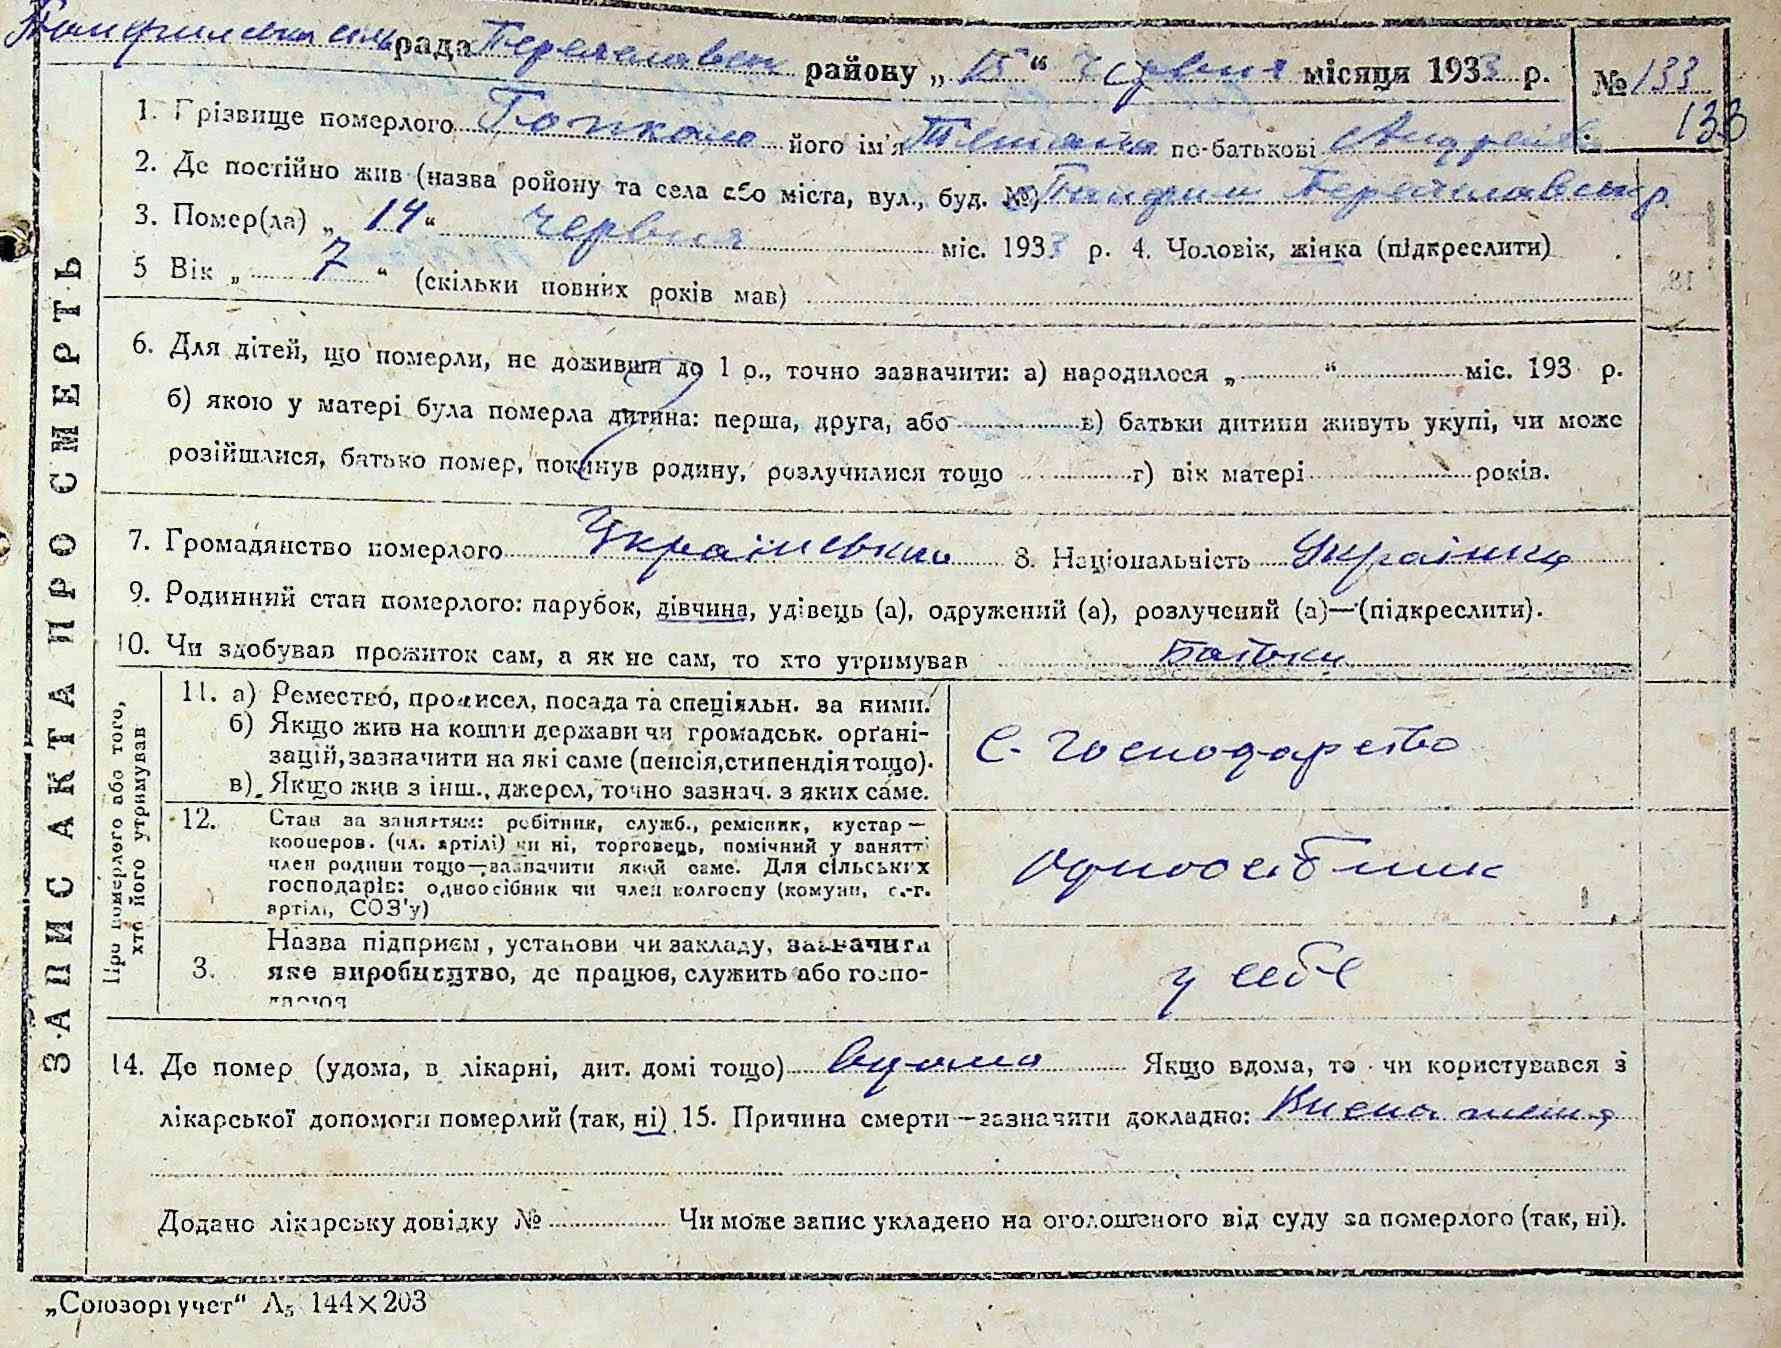 Панфилська сільрада Переяславськ району „ 15 “ червня місяця 1933 р. № 133
133
1. Прізвище померлого його ім'я Тетяна по-батькові Андреївн
2. Де постійно жив (назва ройону та села або міста, вул., буд. №) Панфили Переяславськ р.
3. Помер(ла) „ 14 “ червня міс. 1933 р. 4. Чоловік, жінка (підкреслити)
5 Вік „ 7 “ (скільки повних років мав)
6. Для дітей, що померли, не доживши до 1 р., точно зазначити: а) народилося „ “ міс. 193 р.
б) якою у матері була померла дитина: перша, друга, або в) батьки дитини живуть укупі, чи може
розійшлися, батько помер, покинув родину, розлучилися тощо г) вік матері років.
7. Громадянство померлого Українська 8. Національність Українка
9. Родинний стан померлого: парубок, дівчина, удівець (а), одружений (а), розлучений (а)—(підкреслити).
10. Чи здобував прожиток сам, а як не сам, то хто утримував Батьки
ЗАПИС АКТА ПРО СМЕРТЬ
Про померлого або того,
хто його утримував
11. а) Ремество, промисел, посада та спеціяльн. за ними.
б) Якщо жив на кошти держави чи громадськ. орґані-
зацій, зазначити на які саме (пенсія, стипендія тощо).
в) Якщо жив з інш., джерел, точно зазнач. з яких саме.
С. господарство
12. Стан за заняттям: робітник, служб., ремісник, кустар—
кооперов. (чл. артілі) чи ні, торговець, помічний у занятті
член родини тощо—зазначити який саме. Для сільських
господарів: одноосібник чи член колгоспу (комуни, с.-г.
артілі, СОЗ'у)
одноосібник
3. Назва підприєм, установи чи закладу, зазначити
яке виробництво, де працює, служить або госпо-
дарює
у себе
14. Де помер (удома, в лікарні, дит. домі тощо) вдома Якщо вдома, то чи користувався з
лікарської допомоги померлий (так, ні) 15. Причина смерти—зазначити докладно:
Додано лікарську довідку № Чи може запис укладено на оголошеного від суду за померлого (так, ні).
„Союзоргучет“ А5 144×203